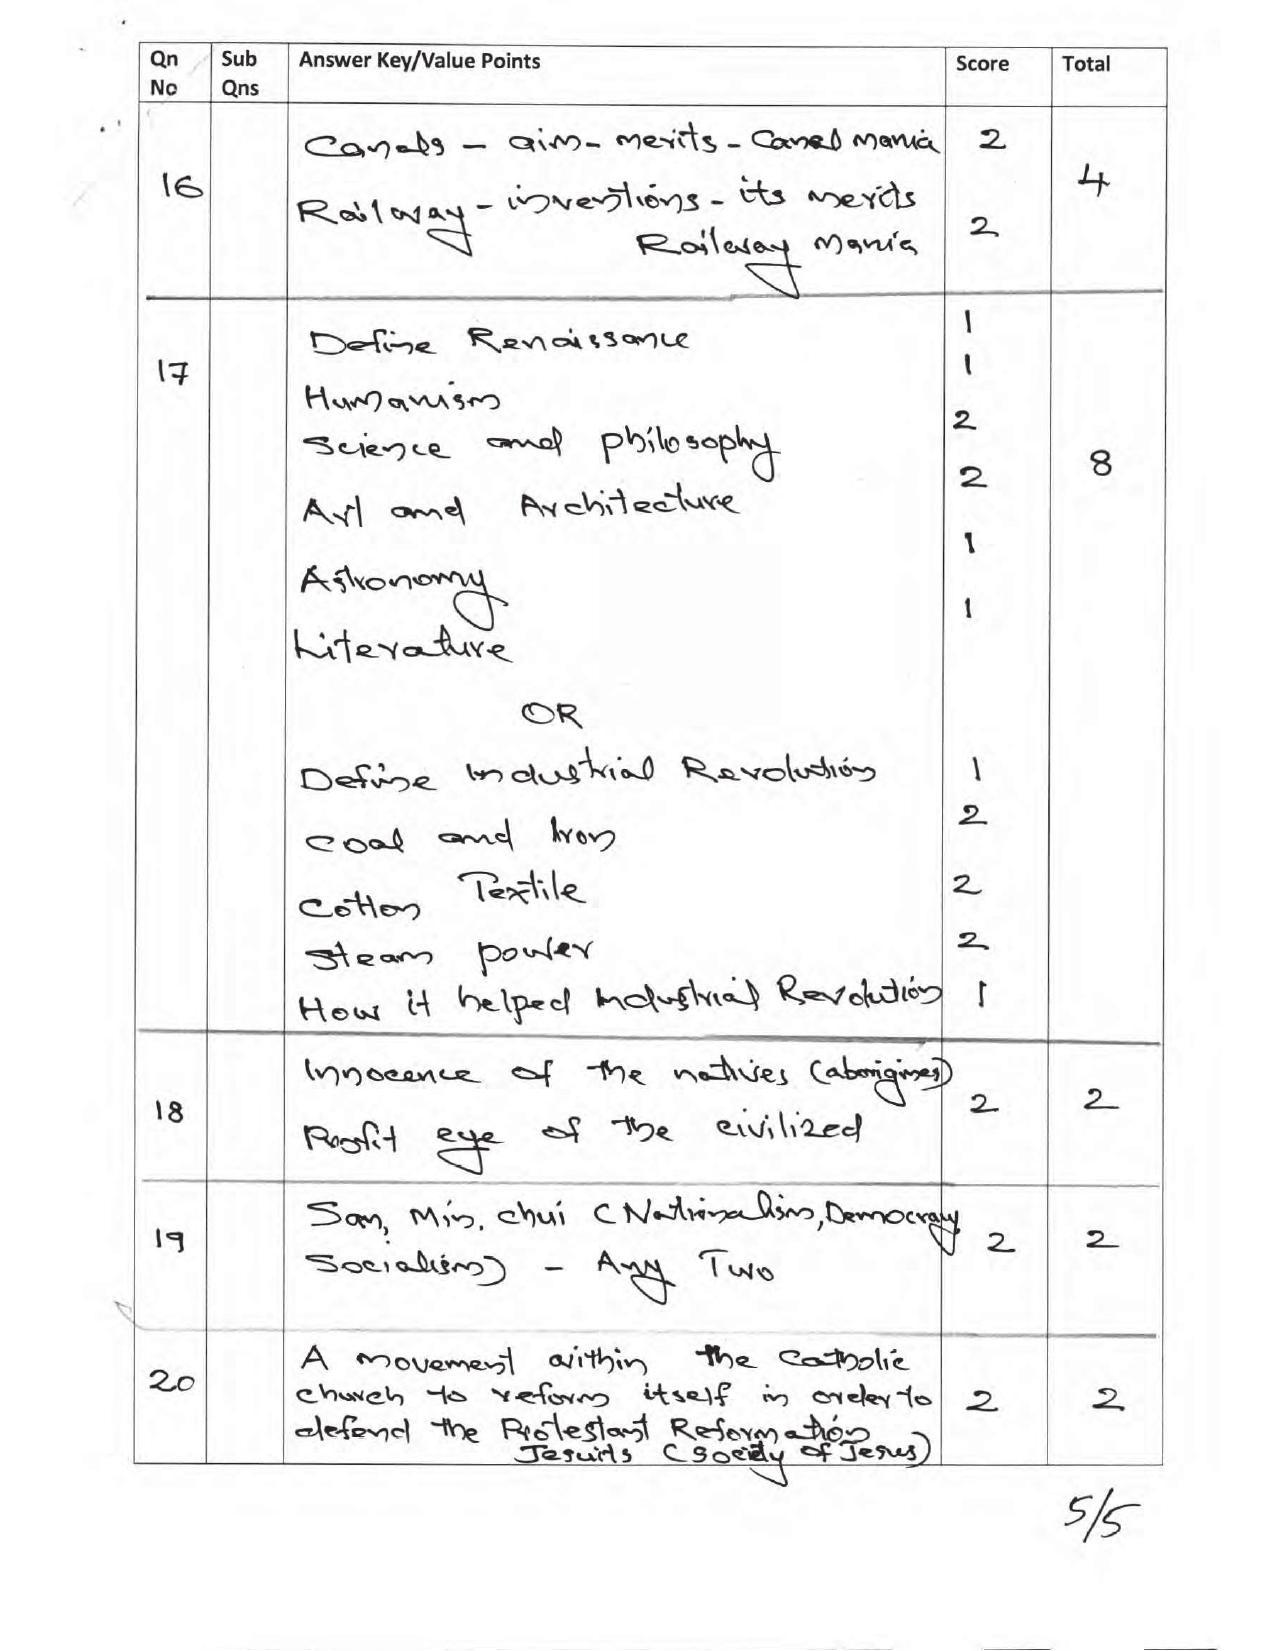 Qn No Sub Qns Answer Key/Value Points Score Total
Canals – aim – merits – Canal Mania 2
16 4
Railway – inventions – its merits
Railway Mania 2
17 Define Renaissance 1
Humanism 1
Science and philosophy 2
8
Art and Architecture 2
Astronomy 1
Literature 1
OR
Define Industrial Revolution 1
Coal and Iron 2
Cotton Textile 2
Steam power 2
How it helped Industrial Revolution 1
Innocence of the natives (aborigines)
18 2 2
Profit eye of the civilized
San, Min, chui (Nationalism, Democracy
19 2 2
Socialism) – Any Two
A movement within the Catholic
20 church to reform itself in order to 2 2
defend the Protestant Reformation
Jesuits (Society of Jesus)
5/5